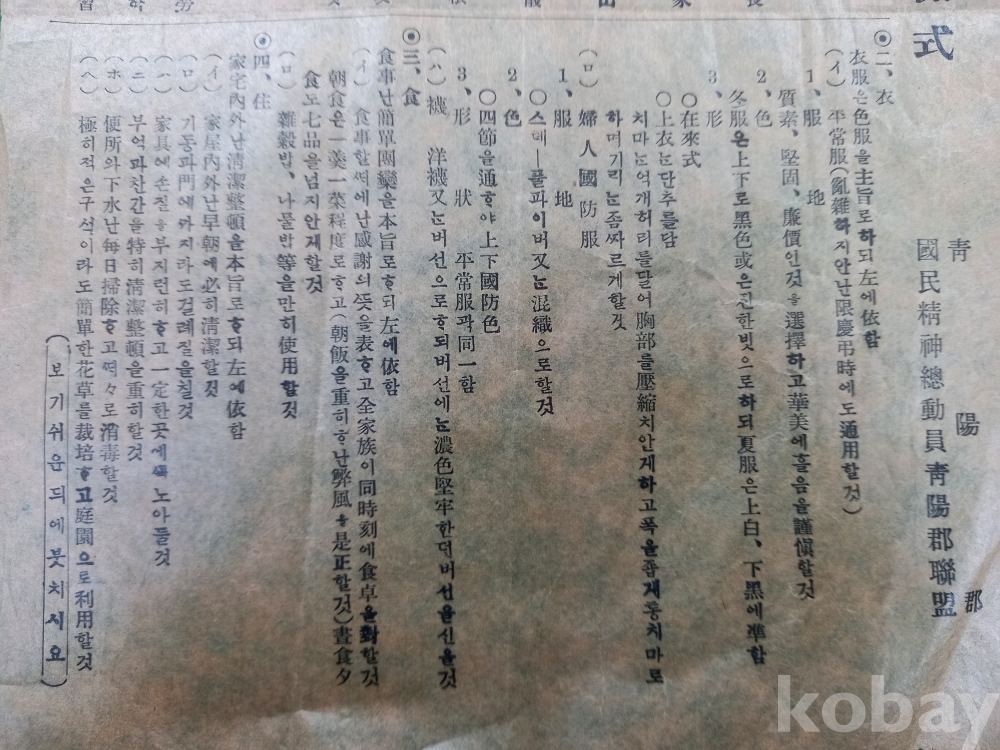 式
青陽郡
國民精神總動員靑陽郡聯盟
◉二、衣
衣服은色服을主旨로하되左에依함
(イ) 平常服(亂雜하지안난限慶弔時에도通用할것)
1、服地
質素、堅固、廉價인것을選擇하고華美에흘음을謹愼할것
2、色
冬服은上下로黑色或은진한빗으로하되夏服은上白、下黑에準함
3、形
○在來式
○上衣는단추를담
치마는억개허리를달어胸部를壓縮치안게하고폭을좁게통치마로
하며기리는좀짜르게할것
(ロ) 婦人國防服
1、服地
○스테―플파이버又는混織으로할것
2、色
○四節을通ᄒᆞ야上下國防色
3、形狀 平常服과同一함
(ハ) 襪 洋襪又는버선으로ᄒᆞ되버선에는濃色堅牢한덧버선을신을것
◉三、食
食事난簡單團欒을本旨로ᄒᆞ되左에依함
(イ) 食事할ᄯᅢ에난感謝의ᄯᅳᆺ을表ᄒᆞ고全家族이同時刻에食卓을對할것
朝食은一羹一菜程度로ᄒᆞ고(朝飯을重히ᄒᆞ난弊風을是正할것)晝食夕
食도七品을넘지안케할것
(ロ) 雜穀밥、나물밥等을만히使用할것
◉四、住
家宅內外난淸潔整頓을本旨로ᄒᆞ되左에依함
(イ) 家屋內外난早朝에必히淸潔할것
(ロ) 기동과門에ᄭᅡ지라도걸레질을칠것
(ハ) 家具에손질을부지런히ᄒᆞ고一定한곳에 노아둘것
(ニ) 부억과찬간을特히淸潔整頓을重히할것
(ホ) 便所와下水난每日掃除ᄒᆞ고ᄯᅢ々로消毒할것
(ヘ) 極히적은구석이라도簡單한花草를栽培ᄒᆞ고庭園으로利用할것
(보기쉬운듸에붓치시요)
kobay